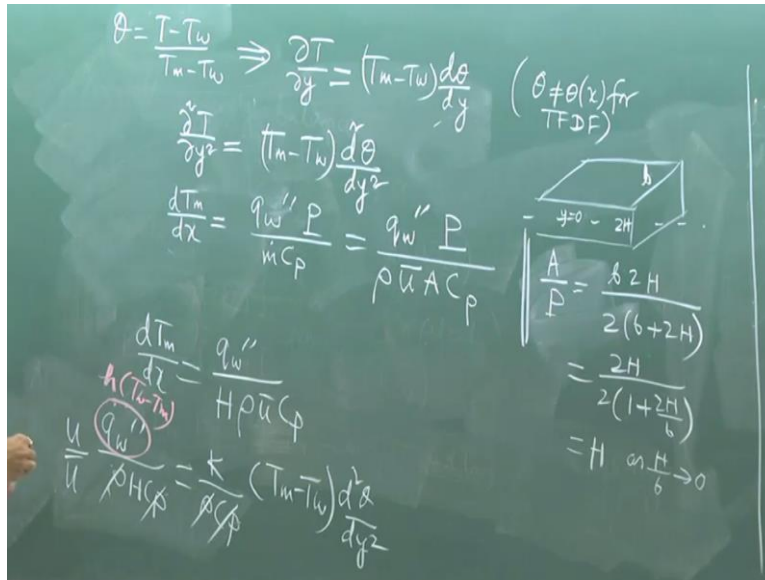 θ = (T - Tw)/(Tm - Tw) ⇒ ∂T/∂y = (Tm - Tw) dθ/dy
(θ ≠ θ(x) for
TFDF)
∂²T/∂y² = (Tm - Tw) d²θ/dy²
dTm/dx = qw'' P/(ṁ Cp) = qw'' P/(ρ ū A Cp)
b
y=0 2H
A/P = b 2H/(2(b + 2H))
= 2H/(2(1 + 2H/b))
= H as H/b → 0
dTm/dx = qw''/(H ρ ū Cp)
h(Tw - Tm)
u/ū qw''/(ρ H Cp) = k/(ρ Cp) (Tm - Tw) d²θ/dy²